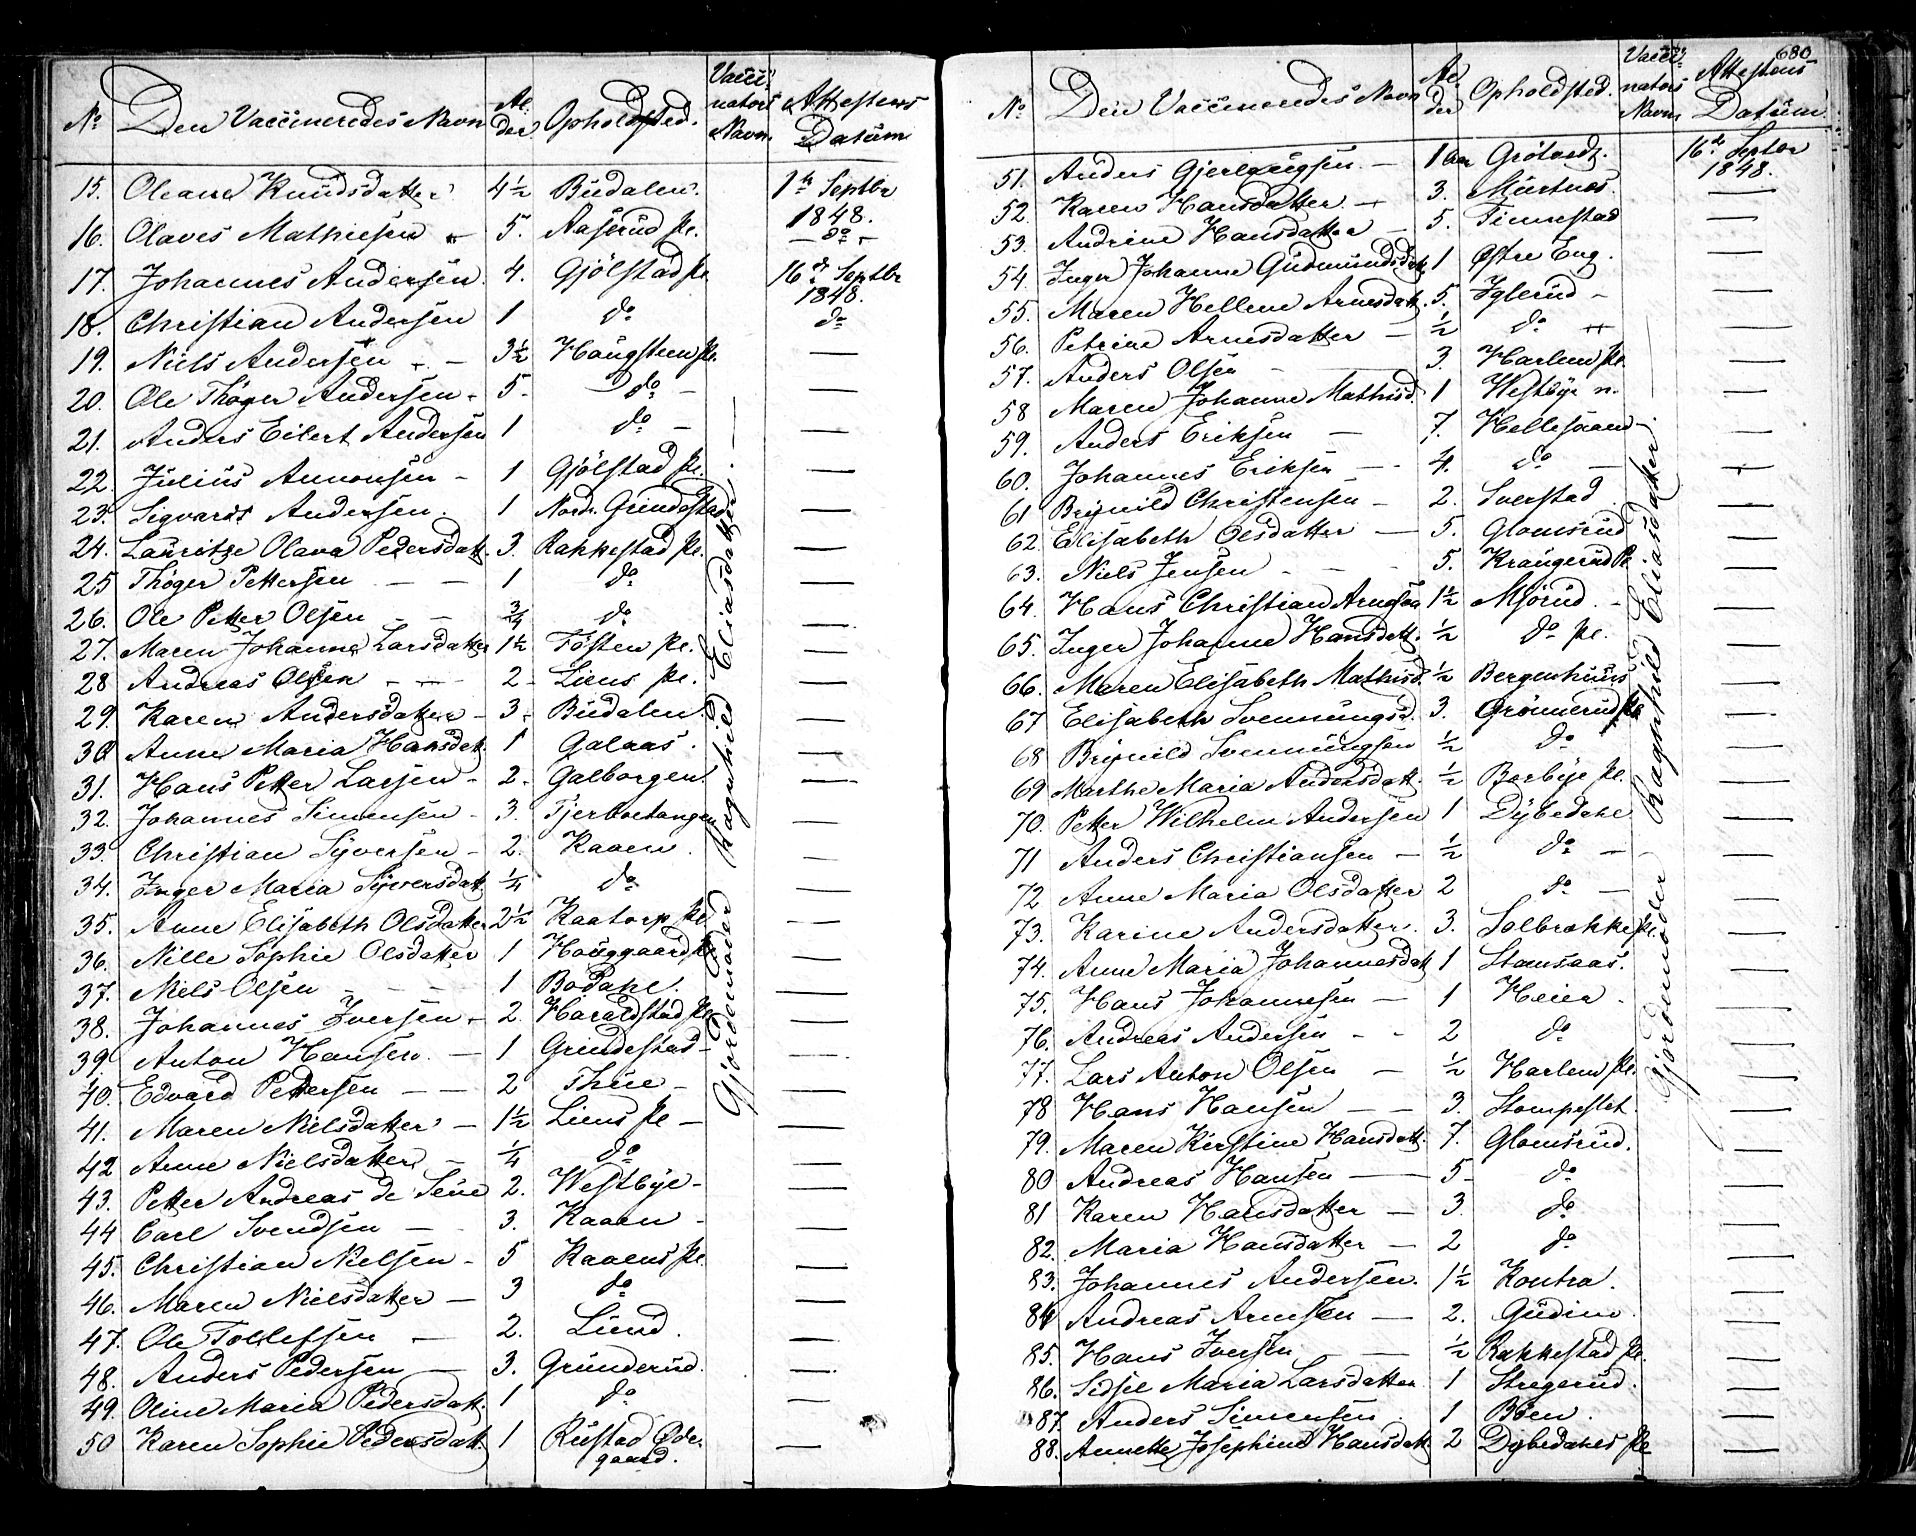 No Den Vaccineredes Navn Alder Opholdssted. Vaccinators Navn Attestens Datum
15. Oleane Knudsdatter 4½ Büdalen. 1te Septbr 1848.
16. Olaves Mathiesen 5. Aaserud Pl. — do —
17. Johannes Andersen 4. Gjölstad Pl. 16d Septbr 1848.
18. Christian Andersen 1 do do
19. Niels Andersen 3½ Haugsteen Pl. —
20. Ole Thøger Andersen 5. do —
21. Anders Eilert Andersen 1 do —
22. Julius Amonsen 1 Gjölstad Pl. —
23. Sigvardt Andersen. 1 Nordr. Grimdestad —
24. Lauritze Olava Pedersdatt. 3. Rakkestad Pl. —
25 Thøger Pettersen 1 do —
26. Ole Petter Olsen ¾ do —
27. Maren Johanne Larsdatter 1½ Tösten Pl. —
28 Andreas Olsen 2 Liens Pl. —
29. Karen Andersdatter 3. Büdalen. —
30 Anne Maria Hansdatt. 1 Galaas. —
31. Hans Petter Larsen 2. Galborgen. —
32. Johannes Simensen 3. Tjerboetangen —
33. Christian Syversen 2. Kaaen. —
34. Inger Maria Syversdatt. ¼ do —
35. Anne Elisabeth Olsdatter 2½ Kaatorp Pl. —
36. Nille Sophie Olsdatter 1 Hauggaard Pl. —
37. Niels Olsen 1 Bødahl. —
38. Johannes Iversen 2. Haraldstad Pl. —
39. Anton Hansen. 1 Grimdestad —
40. Edvard Pettersen 2 Thue —
41. Maren Nielsdatter 1½ Liens Pl —
42 Anne Nielsdatter ¼ do —
43. Petter Andreas de Seue 2. Westbye —
44 Carl Svendsen 3. Kaaen —
45. Christian Nielsen 5 Kaaens Pl. —
46. Maren Nielsdatter 3 do —
47. Ole Tollefsen 2. Lund. —
48. Anders Pedersen 3. Grünnerud. —
49. Oline Maria Pedersdatt. 1 do —
50 Karen Sophie Pedersdatt. 1 Rustad Ødegaard. —
Gjordemoder Ragnhild Eliasdatter
680
No Den Vaccineredes Navn Alder Opholdsted. Vaccinators Navn Attestens Datum
51. Anders Gjerlaugsen 1 aar Grötvedt. 16d Septbr 1848.
52. Karen Hansdatter 3. Murtnes. —
53. Andrine Hansdatter 5. Timestad —
54. Inger Johanne Gudmundsdatt 1 Østre Eng. —
55. Maren Hellene Arnesdatt. 5. Iglerud —
56. Petrine Arnesdatter ½ do —
57. Anders Olsen 3. Harlem Pl. —
58 Maren Johanne Mathisd. 1 Westbye n. —
59. Anders Eriksen 7. Hellesaaen —
60. Johannes Eriksen 4. do —
61 Brynild Christensen 2. Sverstad —
62. Elisabeth Olsdatter 5. Glomsrud —
63. Niels Jensen 5. Krangerud Pl. —
64. Hans Christian Arnesen 1½ Mjörud. —
65. Inger Johanne Hansdatt. ½ do Pl. —
66. Maren Elisabeth Mathisd. ½ Bergenhuus —
67 Elisabeth Svenningsd. 3. Grönnerud Pl. —
68 Brynild Svenningsen ½ do —
69 Marthe Maria Andersdatt. ½ Berbye Pl. —
70. Petter Wilhelm Andersen 1 Dybedahl —
71 Anders Christiansen ½ do —
72 Anne Maria Olsdatter 2 do —
73. Karine Andersdatter. 3. Solbrække Pl. —
74. Anne Maria Johannesdatt 1 Stomsaas. —
75. Hans Johannesen 1 Heier. —
76. Andreas Andersen 2 do —
77. Lars Anton Olsen ½ Harlem Pl. —
78 Hans Hansen 3. Stompeslet. —
79. Maren Kirstine Hansdatt. 7. Glomsrud. —
80 Andreas Hansen 5 do —
81 Karen Hansdatter 3. do —
82. Maria Hansdatter 2 do —
83. Johannes Andersen. 1½ Kontra. —
84 Andreas Arnesen 2. Gudim. —
85. Hans Iversen ½ Rakkestad Pl. —
86. Sidsel Maria Larsdatter 1 Stregerud. —
87. Anders Simensen 1 Böen. —
88. Annette Josephine Hansdatt. 2 Dybedahls Pl —
Gjordemoder Ragnhild Eliasdatter